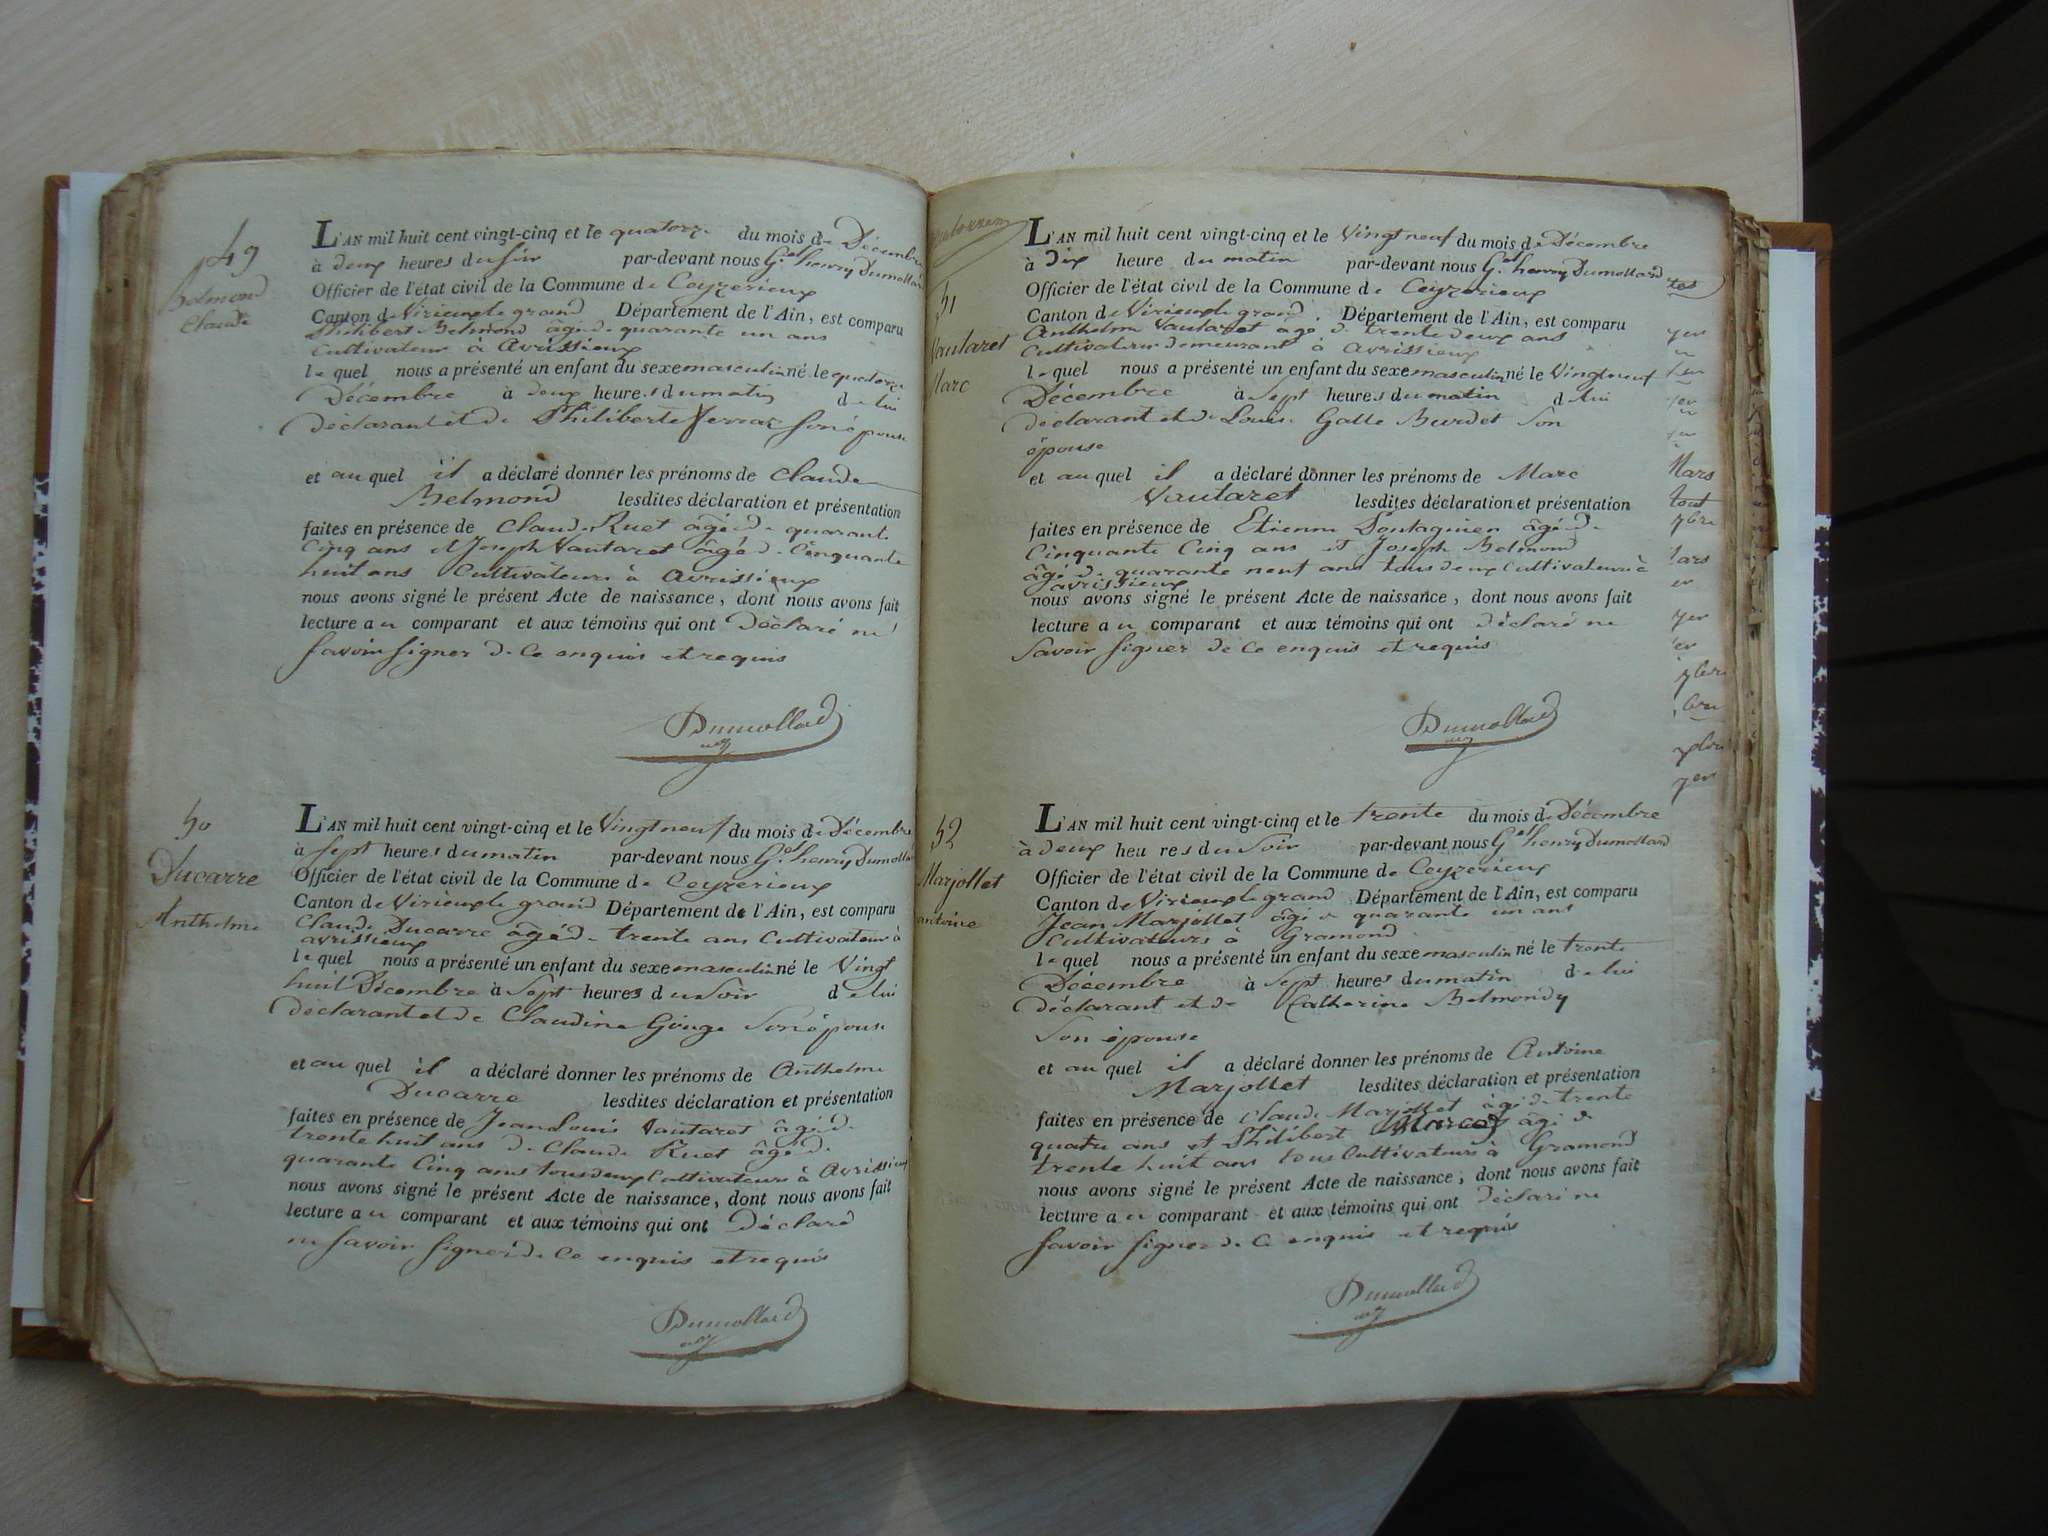 49
Belmond
Claude
L'AN mil huit cent vingt-cinq et le quatorze du mois de Décembre
à deux heures du soir par-devant nous G.el henry Dumollard
Officier de l'état civil de la Commune de Ceyzerieux
Canton de Virieu le grand Département de l'Ain, est comparu
Philibert Belmond âgé de quarante un ans
Cultivateur à Avrissieux
lequel nous a présenté un enfant du sexe masculin né le quatorze
Décembre à deux heures du matin de lui
Déclarant et de Philiberte Ferraz son épouse
et auquel il a déclaré donner les prénoms de Claude
Belmond lesdites déclaration et présentation
faites en présence de Claude Ruet âgé de quarante
Cinq ans et Joseph Vautaret âgé de Cinquante
huit ans Cultivateurs à Avrissieux
nous avons signé le présent Acte de naissance, dont nous avons fait
lecture au comparant et aux témoins qui ont Déclaré ne
savoir signer de ce enquis et requis
Dumollard
50
Ducarre
Anthelme
L'AN mil huit cent vingt-cinq et le Vingt neuf du mois de Décembre
à sept heures du matin par-devant nous G.el henry Dumollard
Officier de l'état civil de la Commune de Ceyzerieux
Canton de Virieu le grand Département de l'Ain, est comparu
Claude Ducarre âgé de trente ans Cultivateur à
avrissieux
lequel nous a présenté un enfant du sexe masculin né le Vingt
huit Décembre à Sept heures du Soir de lui
Déclarant et de Claudine Gouge son épouse
et auquel il a déclaré donner les prénoms de Anthelme
Ducarre lesdites déclaration et présentation
faites en présence de Jean Louis Vautaret âgé de
trente huit ans de Claude Ruet âgé de
quarante Cinq ans tous deux Cultivateurs à Avrissieux
nous avons signé le présent Acte de naissance, dont nous avons fait
lecture au comparant et aux témoins qui ont Déclaré
ne savoir signer de ce enquis et requis
Dumollard
51
Vautaret
Marc
L'AN mil huit cent vingt-cinq et le Vingt neuf du mois de Décembre
à Dix heure du matin par-devant nous G.el henry Dumollard
Officier de l'état civil de la Commune de Ceyzerieux
Canton de Virieu le grand Département de l'Ain, est comparu
Anthelme Vautaret âgé de trente deux ans
Cultivateur demeurant à avrissieux
lequel nous a présenté un enfant du sexe masculin né le Vingt neuf
Décembre à Sept heures du matin de lui
Déclarant et de Louise Galle Burdet son
épouse
et auquel il a déclaré donner les prénoms de Marc
Vautaret lesdites déclaration et présentation
faites en présence de Etienne âgé de
Cinquante Cinq ans et Joseph Belmond
âgé de quarante neuf ans tous deux Cultivateurs à
avrissieux
nous avons signé le présent Acte de naissance, dont nous avons fait
lecture au comparant et aux témoins qui ont déclaré ne
Savoir signer de ce enquis et requis
Dumollard
52
Marjollet
antoine
L'AN mil huit cent vingt-cinq et le trente du mois de Décembre
à deux heures du Soir par-devant nous G.el henry Dumollard
Officier de l'état civil de la Commune de Ceyzerieux
Canton de Virieu le grand Département de l'Ain, est comparu
Jean Marjollet âgé de quarante un ans
Cultivateurs à Gramond
lequel nous a présenté un enfant du sexe masculin né le trente
Décembre à Sept heures du matin de lui
Déclarant et de Catherine Belmondy
Son épouse
et auquel il a déclaré donner les prénoms de Antoine
Marjollet lesdites déclaration et présentation
faites en présence de Claude Marjollet âgé de trente
quatre ans et Philibert âgé de
trente huit ans tous Cultivateurs à Gramond
nous avons signé le présent Acte de naissance, dont nous avons fait
lecture au comparant et aux témoins qui ont Déclaré ne
savoir signer de ce enquis et requis
Dumollard